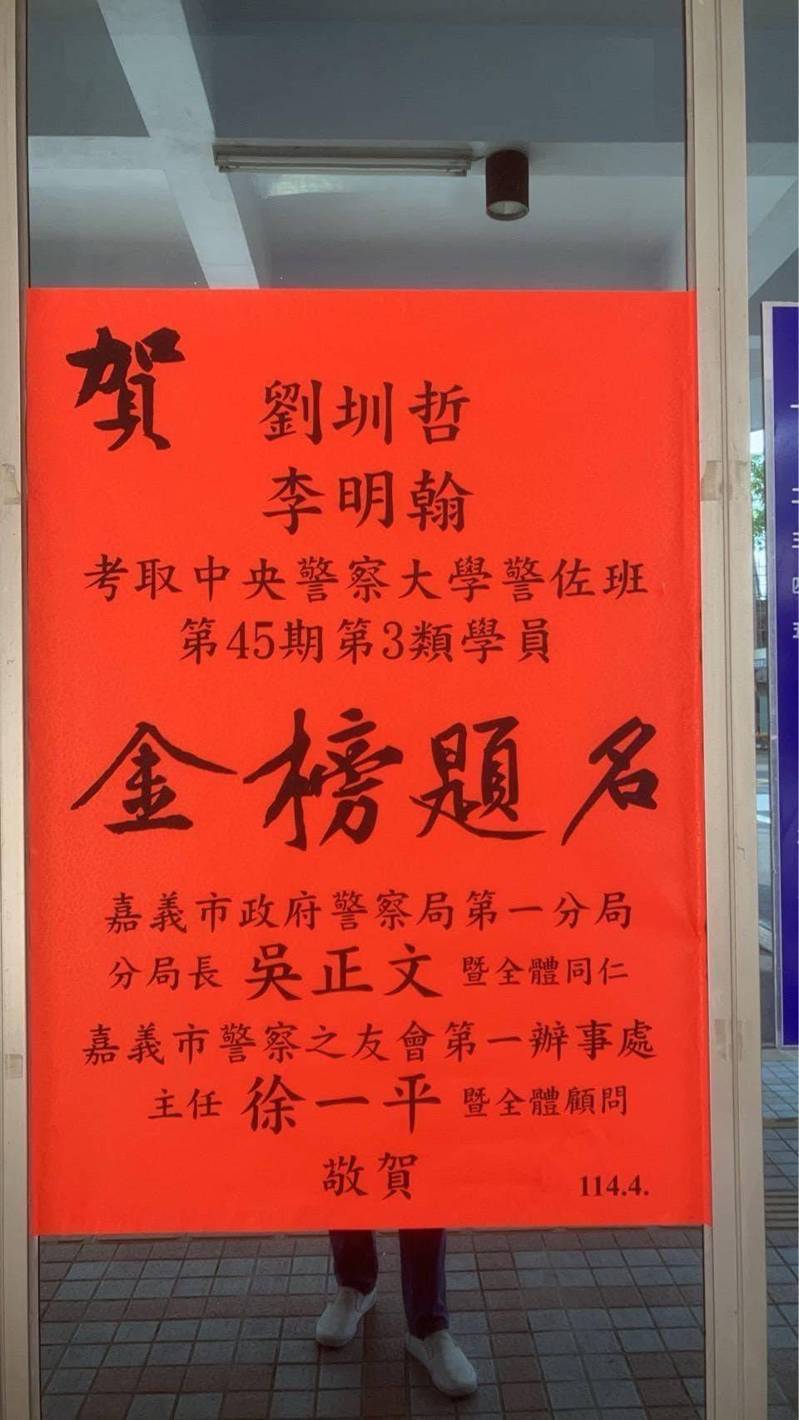 賀
劉圳哲
李明翰
考取中央警察大學警佐班
第45期第3類學員
金榜題名
嘉義市政府警察局第一分局
分局長 吳正文 暨全體同仁
嘉義市警察之友會第一辦事處
主任 徐一平 暨全體顧問
敬賀
114.4.